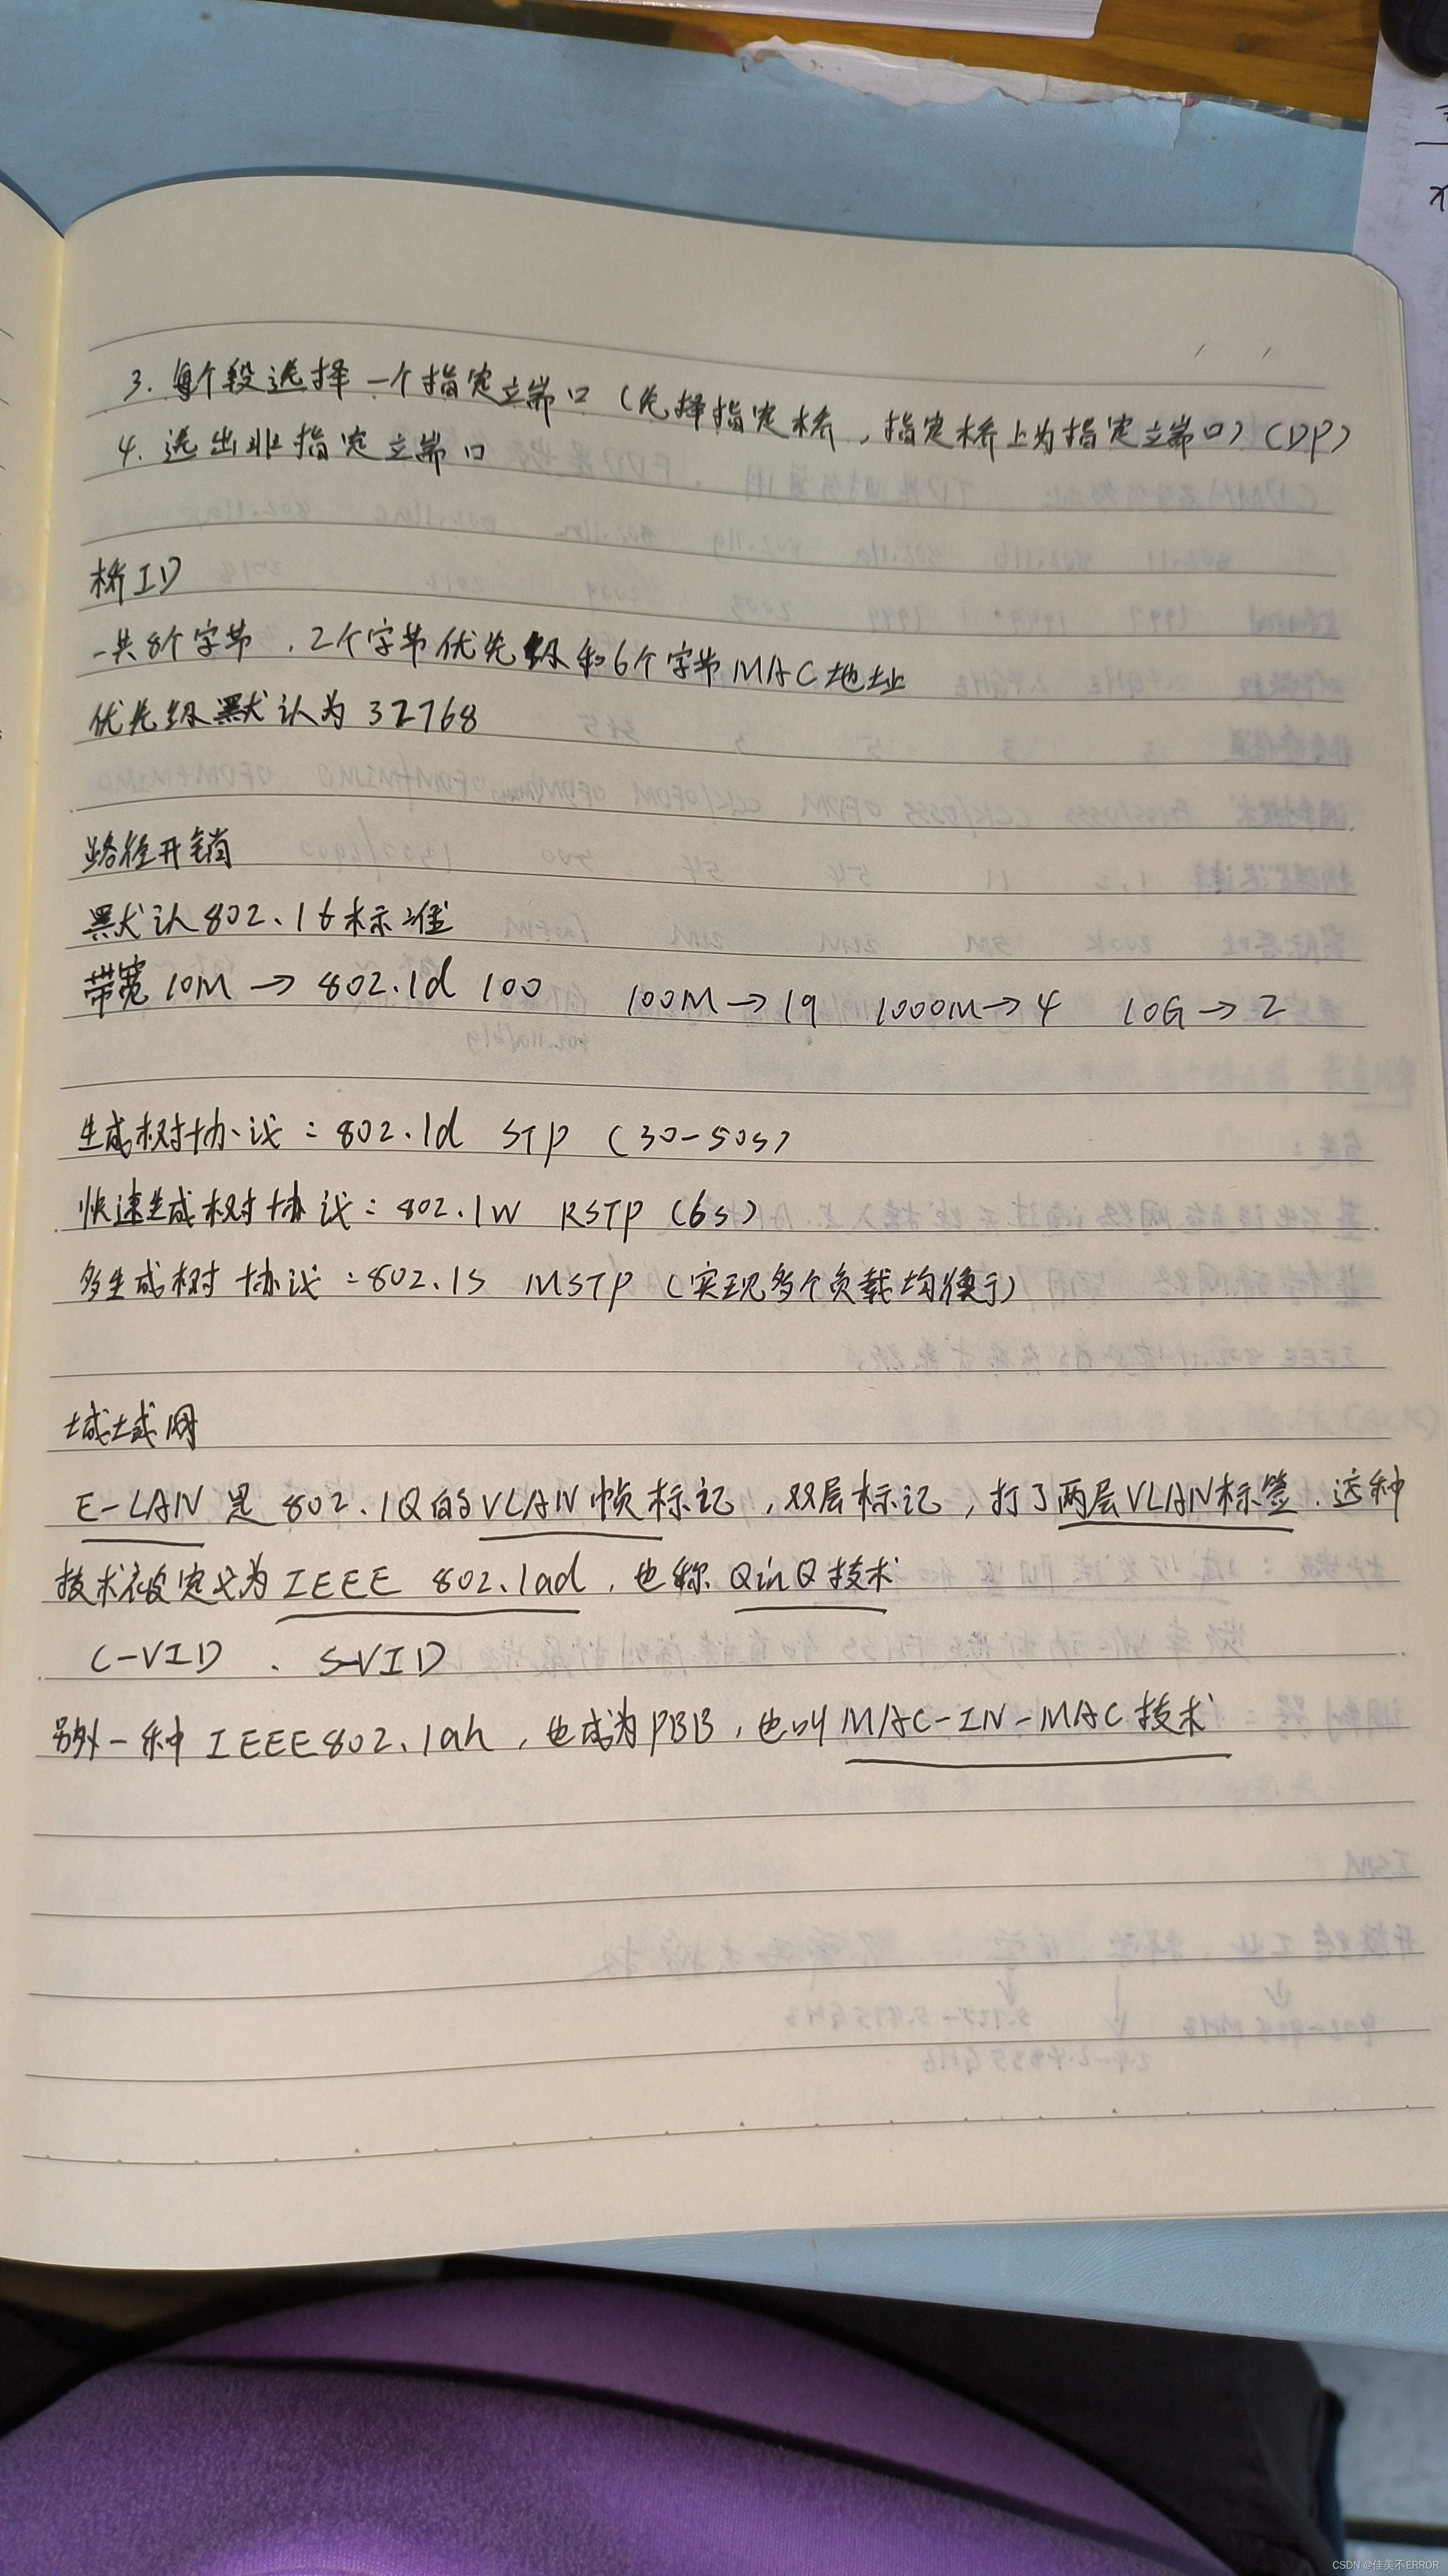 3. 每个段选择一个指定端口（先择指定桥，指定桥上为指定端口）（DP）
4. 选出非指定端口
桥ID
一共8个字节，2个字节优先级和6个字节MAC地址
优先级默认为32768
路径开销
默认802.1t标准
带宽10M → 802.1d 100 100M → 19 1000M → 4 10G → 2
生成树协议：802.1d STP（30-50s）
快速生成树协议：802.1w RSTP（6s）
多生成树协议：802.1s MSTP（实现多个负载均衡）
城域网
E-LAN 是 802.1Q的VLAN帧标记，双层标记，打了两层VLAN标签．这种
技术被定义为IEEE 802.1ad，也称QinQ技术
C-VID 、 S-VID
另外一种IEEE802.1ah，也成为PBB，也叫MAC-IN-MAC技术
CSDN @佳美不ERROR